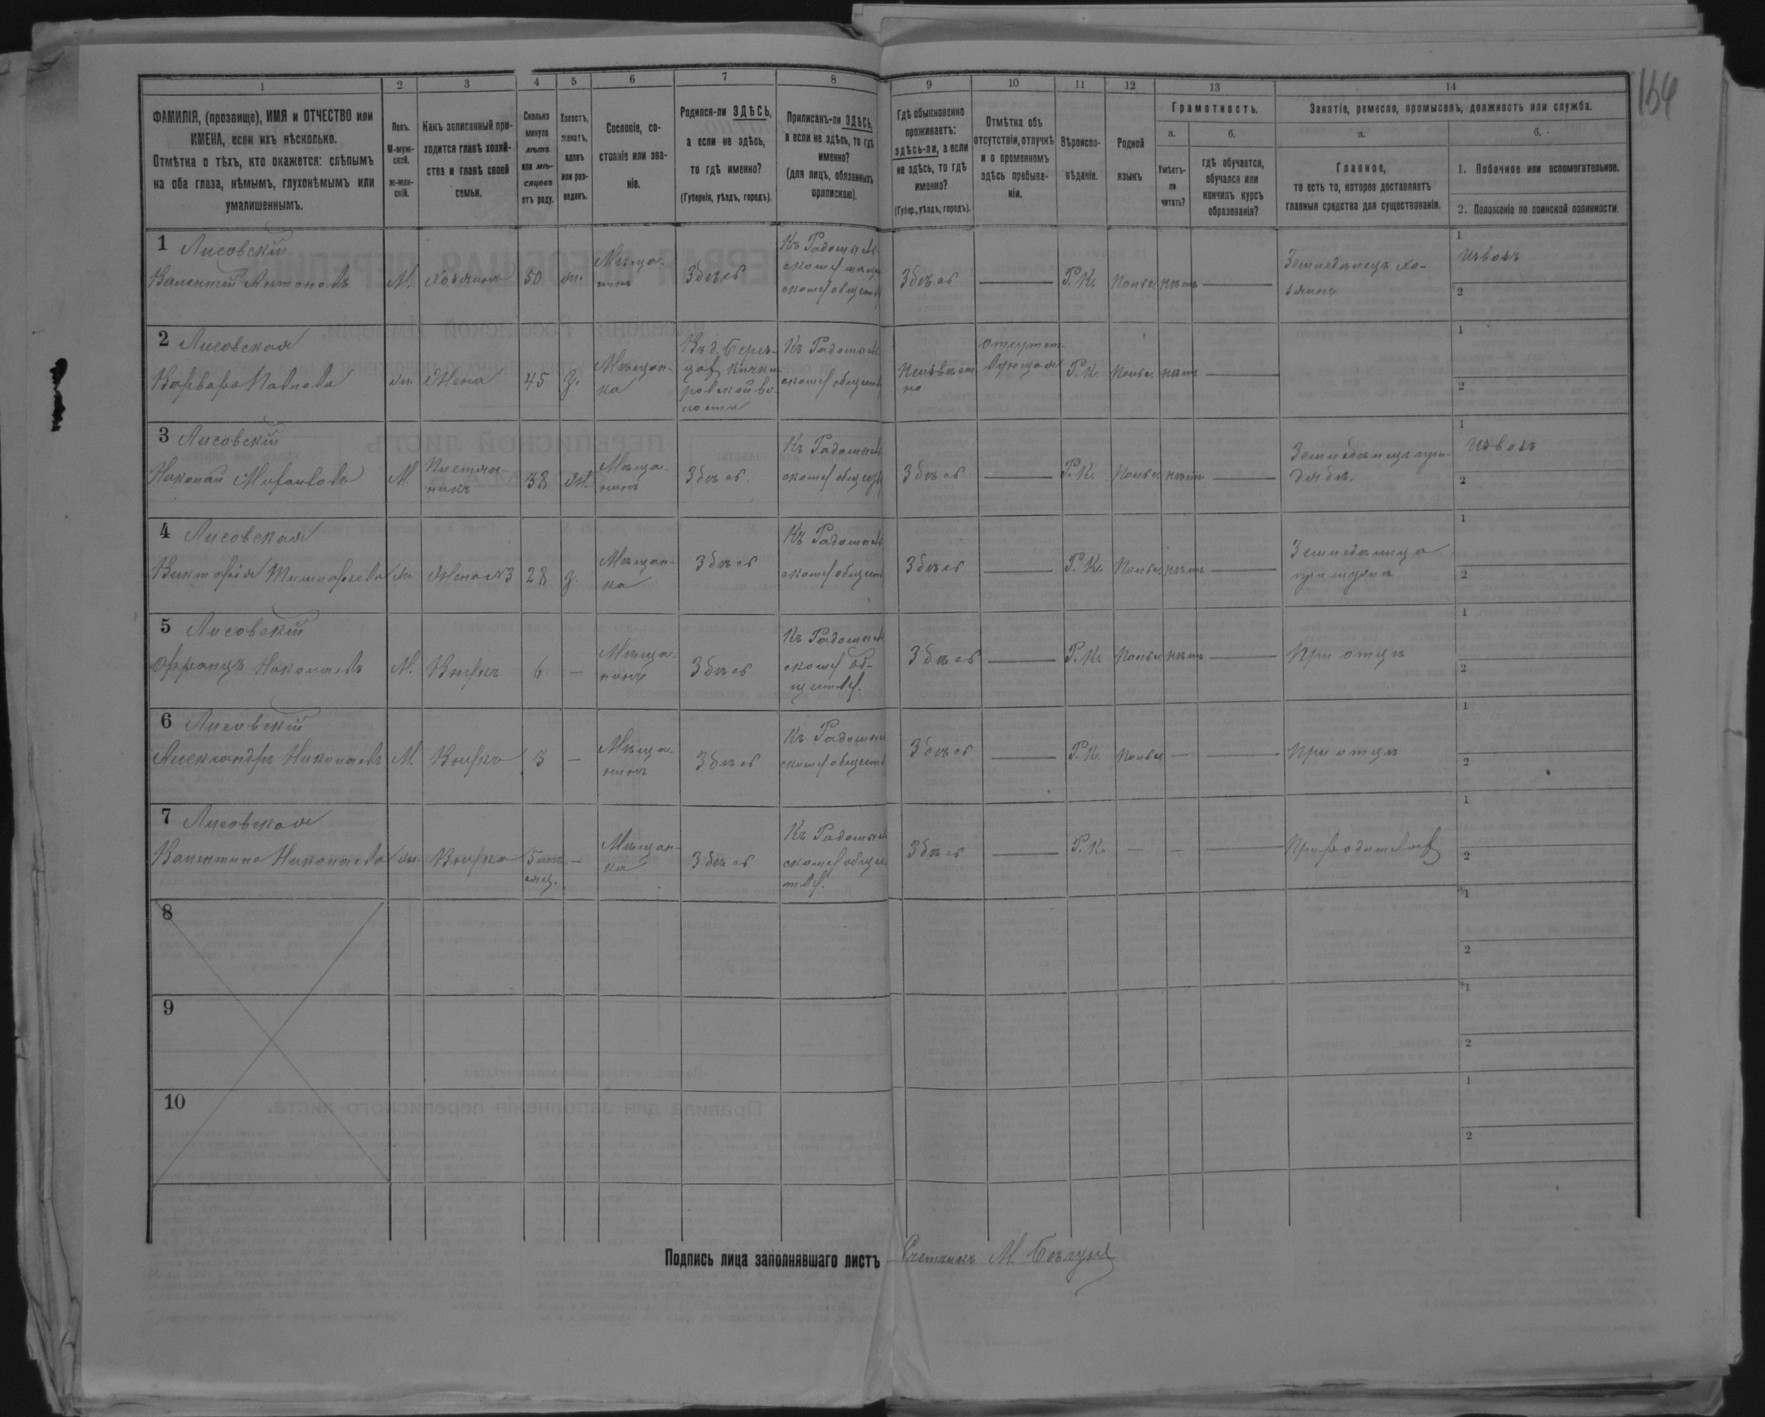 154
1
2
3
4
5
6
7
8
9
10
11
12
13
14
ФАМИЛІЯ, (прозвище), ИМЯ и ОТЧЕСТВО или
ИМЕНА, если ихъ нѣсколько.
Отмѣтка о тѣхъ, кто окажется: слѣпымъ
на оба глаза, нѣмымъ, глухонѣмымъ или
умалишеннымъ.
Полъ.
М-муж-
ской.
ж-жен-
скій.
Какъ записанный при-
ходится главѣ хозяй-
ства и главѣ своей
семьи.
Сколько
минуло
лѣтъ
или мѣ-
сяцевъ
отъ роду.
Холостъ,
женатъ,
вдовъ
или раз-
веденъ.
Сословіе, со-
стояніе или зва-
ніе.
Родился-ли ЗДѢСЬ,
а если не здѣсь,
то гдѣ именно?
(Губернія, уѣздъ, городъ).
Приписанъ-ли ЗДѢСЬ,
а если не здѣсь, то гдѣ
именно?
(для лицъ, обязанныхъ
припискою).
Гдѣ обыкновенно
проживаетъ:
здѣсь-ли, а если
не здѣсь, то гдѣ
именно?
(Губер., уѣздъ, городъ).
Отмѣтка объ
отсутствіи, отлучкѣ
и о временномъ
здѣсь пребыва-
ніи.
Вѣроиспо-
вѣданіе.
Родной
языкъ.
Грамотность.
а.
б.
Умѣетъ-
ли
читать?
гдѣ обучается,
обучался или
кончилъ курсъ
образованія?
Занятіе, ремесло, промыселъ, должность или служба.
а.
б.
Главное,
то есть то, которое доставляетъ
главныя средства для существованія.
1. Побочное или вспомогательное.
2. Положеніе по воинской повинности.
1 Лисовскій
Валентій Антоновъ
М. Хозяинъ 50 ж. Мѣща-
нинъ
Здѣсь
Къ Радошков
скому мѣщан
скому обществу
Здѣсь Р.К. Польс нѣтъ
Земледѣлецъ хо-
зяинъ
1 Извозъ
2
2 Лисовская
Варвара Павлова
ж. Жена 45 з. Мѣщан-
ка
Къ Радошков
скому обществу
Неизвѣст
но
отсутст-
вующая
Р.К. Польс. нѣтъ
1
2
3 Лисовскій
Николай
М. Племян-
никъ
38 ж. Мѣща-
нинъ
Здѣсь
Къ Радошков
скому обществу
Здѣсь Р.К. Польс нѣтъ
Земледѣлецъ при
дядѣ.
1 Извозъ
2
4 Лисовская
Викторія Тимофеева
ж. Жена №3 28 з. Мѣщан-
ка
Здѣсь
Къ Радошков
скому обществу
Здѣсь Р.К. Польс нѣтъ
Земледѣлица
при мужѣ
1
2
5 Лисовскій
Францъ Николаевъ
М. Внукъ 6 — Мѣща-
нинъ
Здѣсь
Къ Радошков
скому об-
ществу.
Здѣсь Р.К. Польс нѣтъ
При отцѣ
1
2
6 Лисовскій
Александръ Николаевъ
М. Внукъ 3 — Мѣща-
нинъ
Здѣсь
Къ Радошков
скому обществу
Здѣсь Р.К. Польс —
При отцѣ
1
2
7 Лисовская
Валентина Николаева
ж. Внука 5 — Мѣщан-
ка
Здѣсь
Къ Радошков
скому общес
тву.
Здѣсь Р.К. — —
При родителяхъ
1
2
8
1
2
9
1
2
10
1
2
Подпись лица заполнявшаго листъ Счетчикъ М.